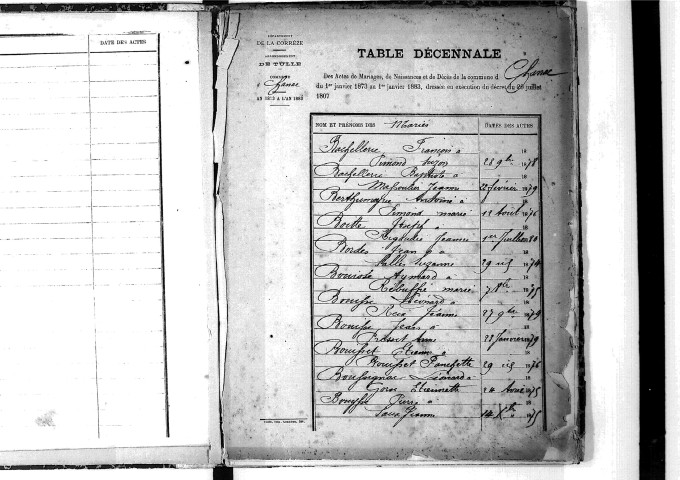 DATE DES ACTES
DÉPARTEMENT
DE LA CORRÈZE
ARRONDISSEMENT
DE TULLE
COMMUNE
d Chanac
AN 1873 A L'AN 1883
TABLE DÉCENNALE
Des Actes de Mariages, de Naissances et de Décès de la commune d Chanac
du 1er janvier 1873 au 1er janvier 1883, dressée en exécution du décret du 20 juillet
1807
NOM ET PRÉNOMS DES Mariés DATES DES ACTES
Bachellerie François à 18
Simond Suzon 28 9bre 1878
Bachellerie Baptiste à 18
Massoulier Jeanne 22 février 1879
Berthumeyrie Antoine à 18
Simond marie 12 Août 1876
Boette Joseph à 18
Rigaudie Jeanne 1er Juillet 1880
Bordes Jean à 18
Salles Suzanne 29 1874
Bouriose Aymard à 18
Rebuffie marie 7 8bre 1875
Bouysse Léonard à 18
Jeanne 27 9bre 1879
Bouysse Jean à 18
28 Janvier 1879
Bouysset Etienne à 18
Bouysset 29 1876
Léonard à 18
Etiennette 24 1875
Bouysse Pierre à 18
Jeanne 14 Xbre 1875